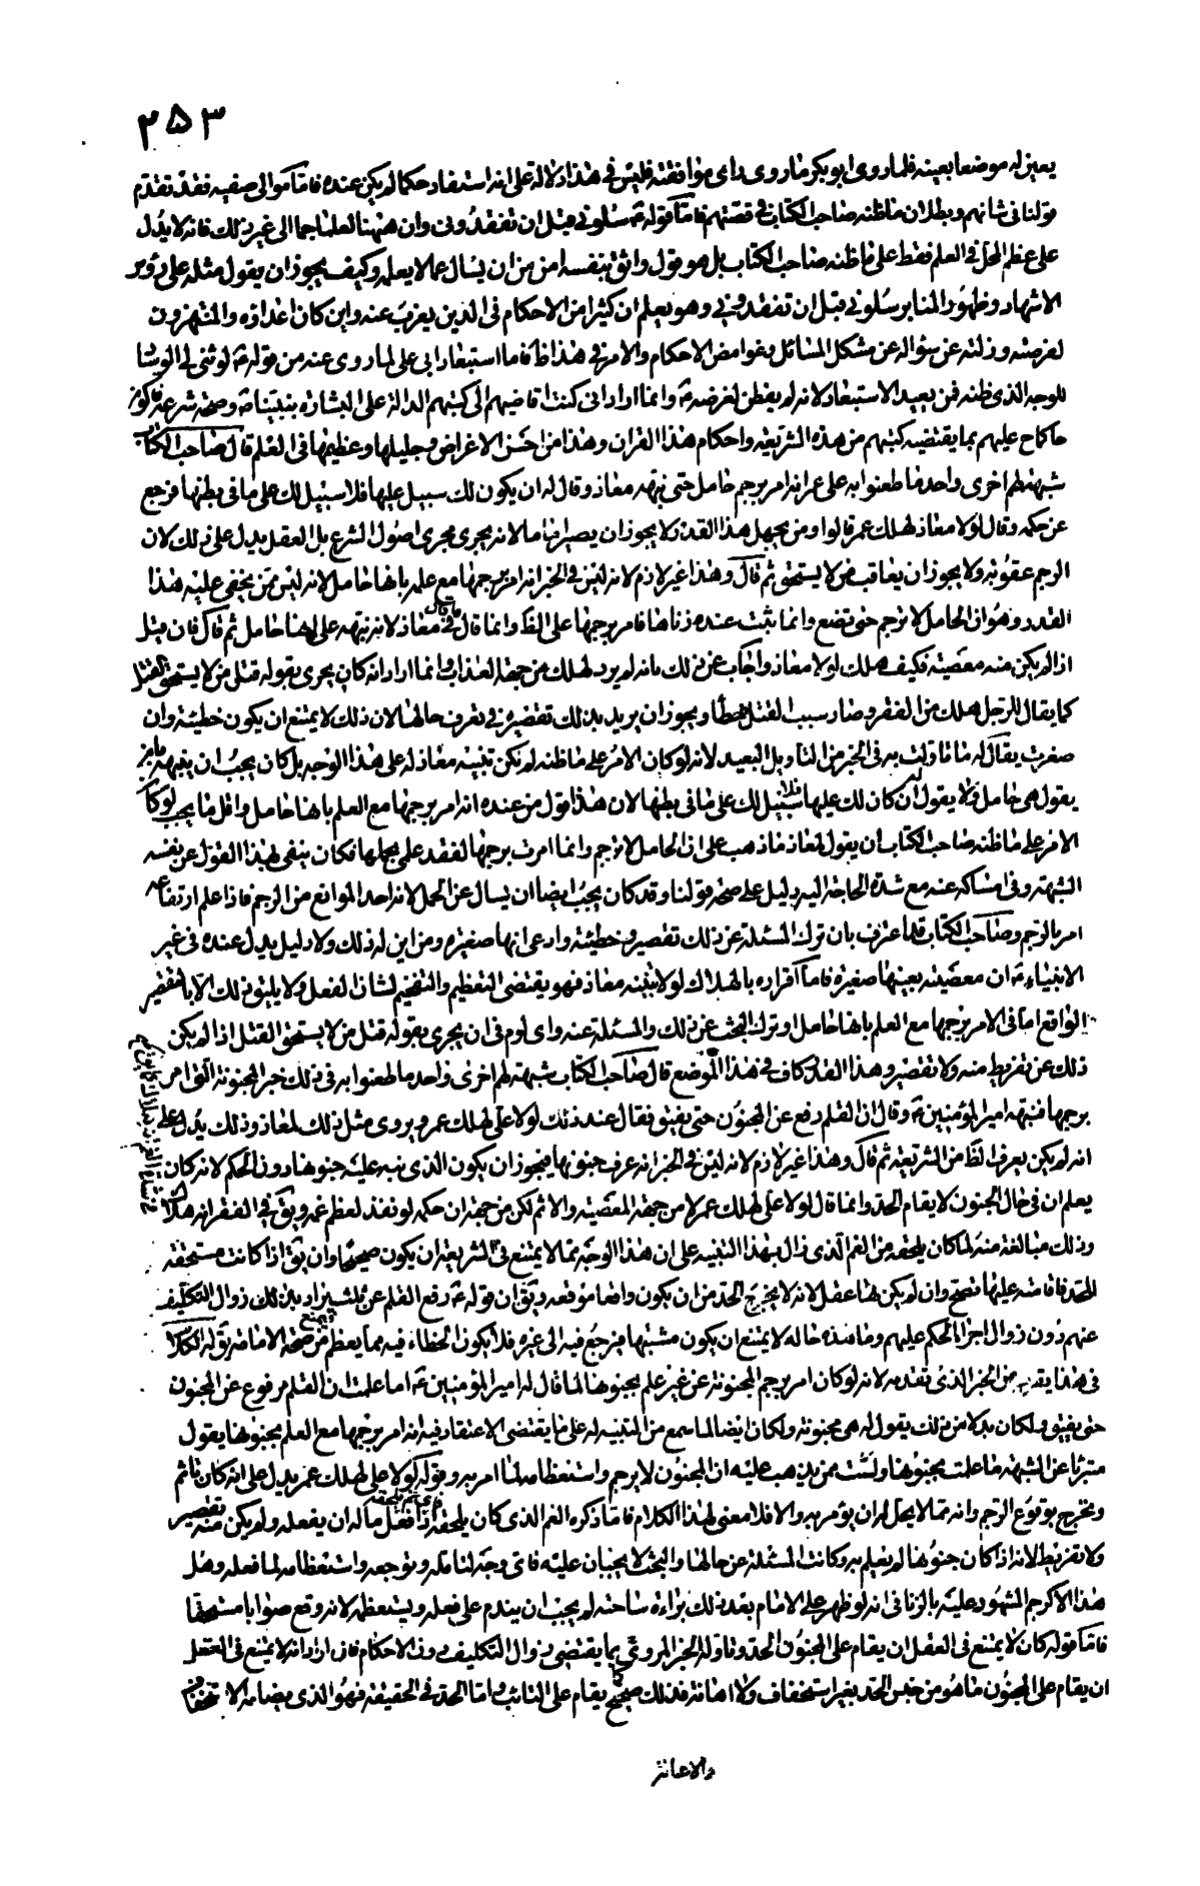 ٢٥٣
يعين له موضعا بعينه فلما روى ابو بكر ما روى راى موافقته فليس في هذا دلالة على انه استفاد حكما لم يكن عنده فاما موالى صفيه فقد تقدم
قولنا في شانهم وبطلان ما ظنه صاحب الكتاب في قصتهم فاما قوله ع سلوني قبل ان تفقدوني وان ههنا لعلما جما الى غير ذلك فانه لا يدل
على عظم المحل في العلم فقط على ما ظنه صاحب الكتاب بل هو قول واثق بنفسه امن من ان يسال عما لا يعلمه وكيف يجوز ان يقول مثله على رؤس
الاشهاد وظهور المنابر سلوني قبل ان تفقدوني وهو يعلم ان كثيرا من الاحكام في الدين يعزب عنه واين كان اعداؤه والمنتهزون
لفرصته وزلته عن سؤاله عن مشكل المسائل وغوامض الاحكام والامر في هذا ظ فاما استبعاد ابي على لما روى عنه من قوله ع لو ثني لي الوسا
للوجه الذى ظنه فمن بعيد الاستبعاد لانه لم يفطن لغرضه ع وانما اراد انى كنت اقاضيهم الى كتبهم الدالة على البشارة بنبينا ص وصحة شرعه فاكون
حاكما عليهم بما يقتضيه كتبهم من هذه الشريعة واحكام هذا القران وهذا من احسن الاغراض وجليلها وعظيمها في العلم قال صاحب الكتاب
شبهة لهم اخرى واحد ما طعنوا به على عمر انه امر برجم حامل حتى نبهه معاذ وقال له ان يكون لك سبيل عليها فلا سبيل لك على ما في بطنها فرجع
عن حكمه وقال لولا معاذ لهلك عمر قالوا ومن يجهل هذا القدر لا يجوز ان يصير اماما لانه يجرى مجرى اصول الشرع بل العقل يدل على ذلك لان
الرجم عقوبة ولا يجوز ان يعاقب من لا يستحق ثم قال وهذا غير لازم لانه ليس في الخبر انه امر برجمها مع علمه بانها حامل لانه ليس ممن يخفى عليه هذا
القدر وهو ان الحامل لا ترجم حتى تضع وانما ثبت عنده زناها فامر برجمها على الظ وانما قال ما قال في معاذ لانه نبهه على انها حامل ثم قال فان قيل
اذا لم يكن منه معصية فكيف هلك لو لا معاذ واجاب عن ذلك بانه لم يرد لهلك من جهة العذاب وانما اراد انه كان يجرى بقوله قتل من لا يستحق القتل
كما يقال للرجل هلك من الفقر وصار سبب القتل خطأ ويجوز ان يريد بذلك تقصيره في تعرف حالها لان ذلك لا يمتنع ان يكون خطيئة وان
صغرت يقال له ما تاولت به في الخبر من التاويل البعيد لانه لو كان الامر على ما ظنه لم يكن تنبيه معاذ له على هذا الوجه بل كان يجب ان ينبهه بان
يقول هى حامل ولا يقول ان كان لك عليها سبيل فلا سبيل لك على ما في بطنها لان هذا قول من عنده انه امر برجمها مع العلم بانها حامل واقل ما يجب لو كان
الامر على ما ظنه صاحب الكتاب ان يقول لمعاذ ما ذهب على ان الحامل لا ترجم وانما امرت برجمها لفقد علمي بحملها فكان ينفى بهذا القول عن نفسه
الشبهة وفي امساكه عنه مع شدة الحاجة اليه دليل على صحة قولنا وقد كان يجب ايضا ان يسال عن الحمل لانه احد الموانع من الرجم فاذا علم ارتفاعه
امر بالرجم وصاحب الكتاب قد اعترف بان ترك المسئلة عن ذلك تقصير وخطيئة وادعى انها صغيرة ومن اين له ذلك ولا دليل يدل عنده في غير
الانبياء ع ان معصية بعينها صغيرة فاما اقراره بالهلاك لولا تنبيه معاذ فهو يقتضى التعظيم والتفخيم لشان الفعل ولا يليق ذلك الا بالتقصير
الواقع اما في الامر برجمها مع العلم بانها حامل او ترك البحث عن ذلك والمسئلة عنه واى لوم في ان يجرى بقوله قتل من لا يستحق القتل اذا لم يكن
ذلك عن تفريط منه ولا تقصير وهذا القدر كاف في هذا الموضع قال صاحب الكتاب شبهة لهم اخرى واحد ما طعنوا به في ذلك خبر المجنونة التى امر
برجمها فنبهه امير المؤمنين ع وقال ان القلم رفع عن المجنون حتى يفيق فقال عند ذلك لولا على لهلك عمر ويروى مثل ذلك لمعاذ وذلك يدل على
انه لم يكن يعرف الظ من الشريعة ثم قال وهذا غير لازم لانه ليس في الخبر انه عرف جنونها فيجوز ان يكون الذى نبه عليه جنونها دون الحكم لانه كان
يعلم ان في حال الجنون لا يقام الحد وانما قال لولا على لهلك عمر لا من جهة المعصية والاثم لكن من جهة ان حكمه لو نفذ لعظم غمه ويق في الفقر انه هلاك
وذلك مبالغة منه لما كان يلحقه من الغم الذى زال بهذا التنبيه على ان هذا الوجه مما لا يمتنع في الشريعة ان يكون صحيحا وان يق اذا كانت مستحقة
للحد فاقامته عليها تصح وان لم يكن لها عقل لانه لا يخرج الحد من ان يكون واقعا موقعه ويق ان قوله ع رفع القلم عن ثلث يراد بذلك زوال التكليف
عنهم دون زوال اجراء الحكم عليهم وما هذه حاله لا يمتنع ان يكون مشتبها فرجع فيه الى غيره فلا يكون الخطاء فيه مما يعظم ويمنع من صحة الامامة يق له الكلام
في هذا يقرب من الخبر الذى تقدمه لانه لو كان امر برجم المجنونة عن غير علم بجنونها لما قال له امير المؤمنين ع اما علمت ان القلم مرفوع عن المجنون
حتى يفيق ولكان بدلا من ذلك يقول له هى مجنونة ولكان ايضا لما سمع من التنبيه له على ما يقتضى الاعتقاد فيه انه امر برجمها مع العلم بجنونها يقول
متبرئا عن الشبهة ما علمت بجنونها ولست ممن يذهب عليه ان المجنون لا يرجم واستعظامه لما امر به وقوله لولا على لهلك عمر يدل على انه كان تاثم
وتحرج بوقوع الرجم وانه مما لا يحل له ان يؤمر به والا فلا معنى لهذا الكلام فاما ذكره الغم الذى كان يلحقه فاى غم يلحقه اذا فعل ما له ان يفعله ولم يكن منه تقصير
ولا تفريط لانه اذا كان جنونها لم يعلم به وكانت المسئلة عن حالها والبحث لا يجبان عليه فاى وجه لتالمه وتوجعه واستعظامه لما فعله وهل
هذا الا كرجم المشهود عليه بالزنا في انه لو ظهر على الامام بعد ذلك براءة ساحته لم يجب ان يندم على فعله ويستعظمه لانه وقع صوابا مستحقا
فاما قوله كان لا يمتنع في العقل ان يقام على المجنون الحد وتاوله الخبر المروى بما يقتضى زوال التكليف دون الاحكام فان اراد انه لا يمتنع في العقل
ان يقام على المجنون ما هو من جنس الحد بغير استخفاف ولا اهانة فذلك صحيح كما يقام على التائب واما الحد في الحقيقة فهو الذى يضامه الاستخفاف
والاهانة